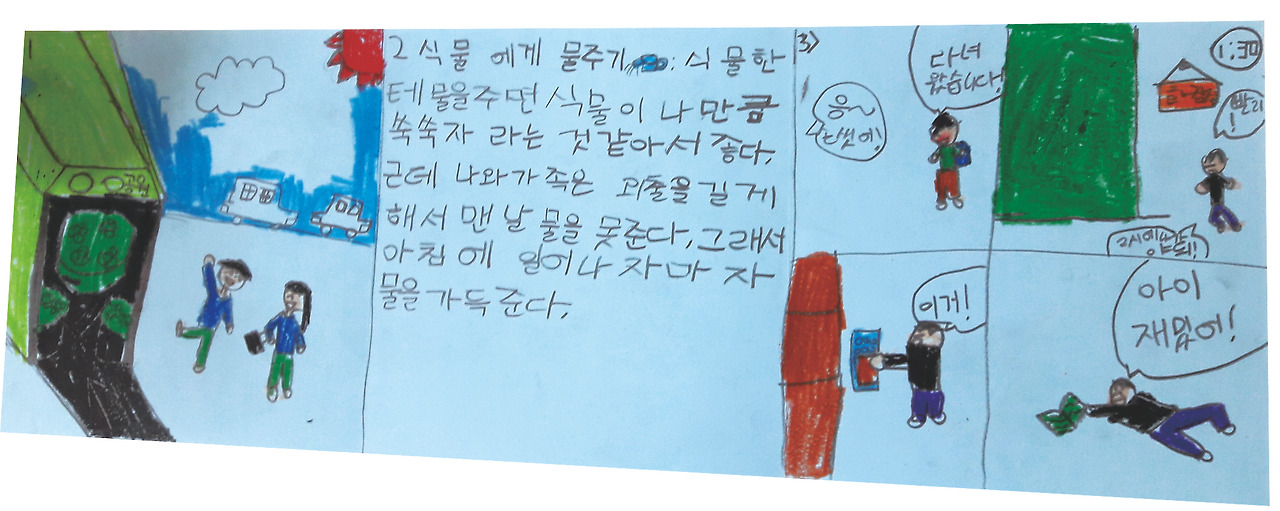 공원
2 식물 에게 물주기 : 식물한
테 물을주면 식물이 나 만큼
쑥쑥자 라는 것같아서 좋다.
근데 나와가 족은 외출을 길게
해서 맨날 물을 못준다. 그래서
아침에 일어나 자마 자
물을 가득 준다.
3>
다녀
왔습니다!
응~
빨리
!
이게!
아이
재밌어!